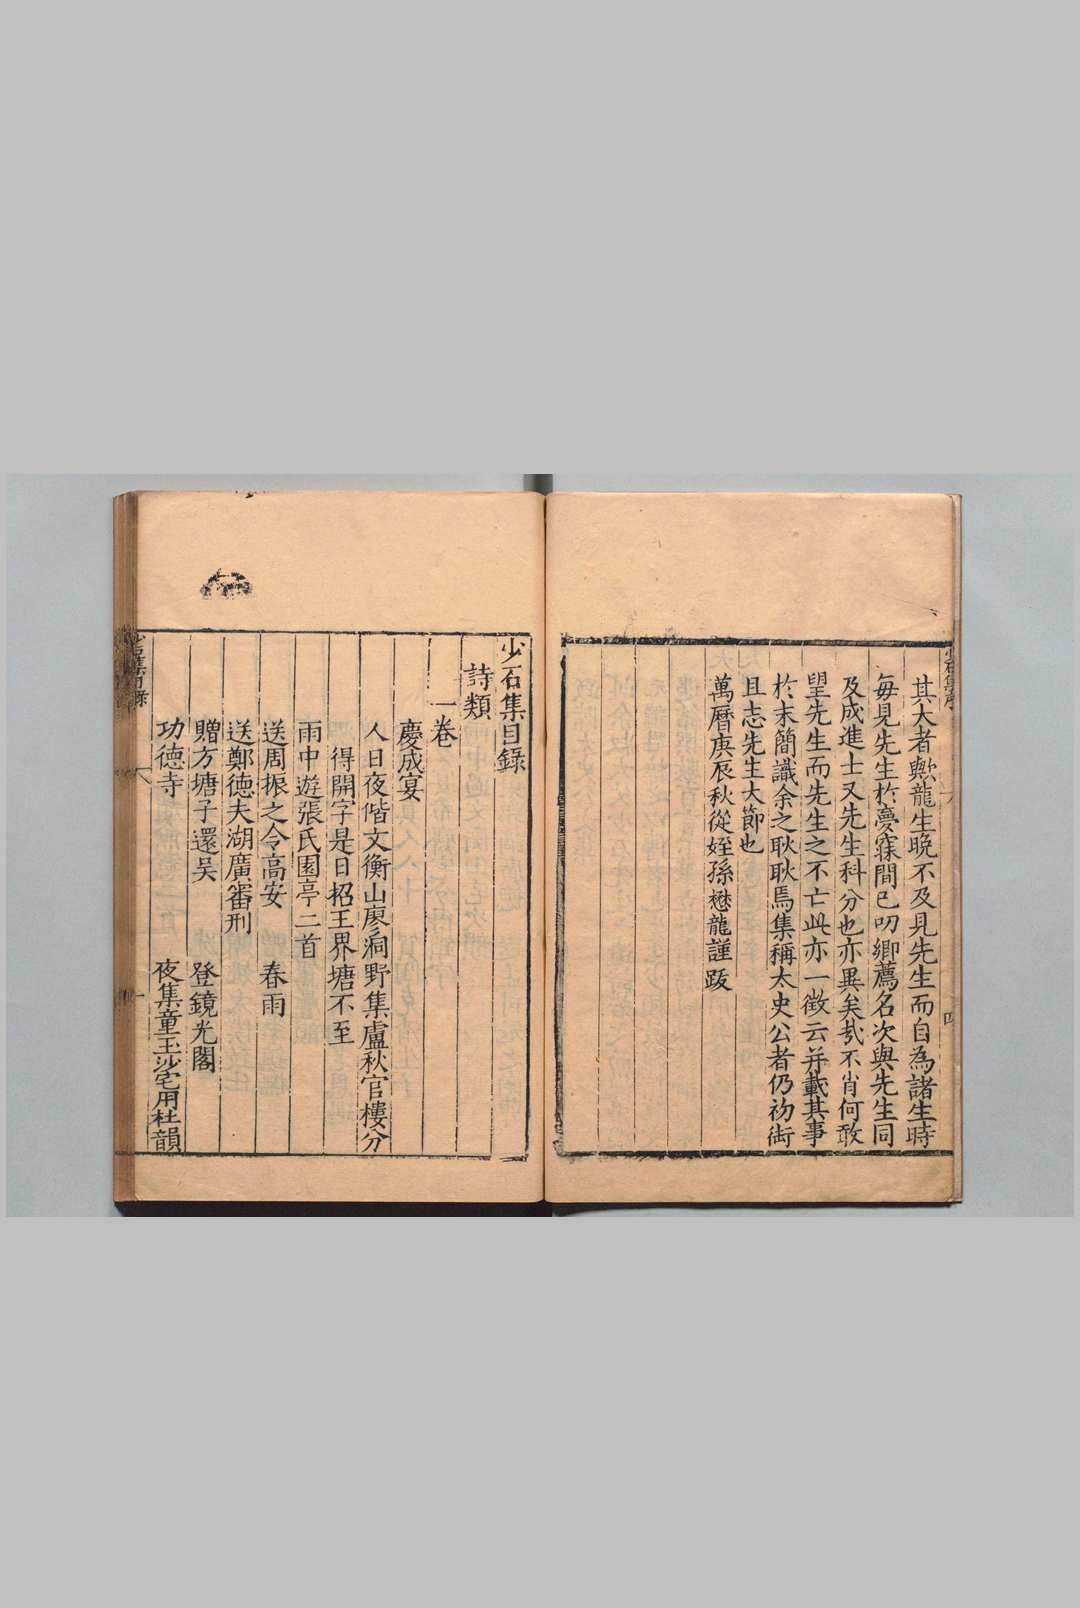 其大者歟龍生晚不及見先生而自為諸生時
每見先生於夢寐間已叨鄉薦名次與先生同
及成進士又先生科分也亦異矣哉不肖何敢
望先生而先生之不亡此亦一徵云并載其事
於末簡識余之耿耿焉集稱太史公者仍初銜
且志先生大節也
萬曆庚辰秋從姪孫懋龍謹跋
四
少石集目錄
詩類
一卷
慶成宴
人日夜偕文衡山廖洞野集盧秋官樓分
得開字是日招王界塘不至
雨中遊張氏園亭二首
送周振之令高安 春雨
送鄭德夫湖廣審刑
贈方塘子還吴 登鏡光閣
功德寺 夜集童玉沙宅用杜韻
少石集目錄